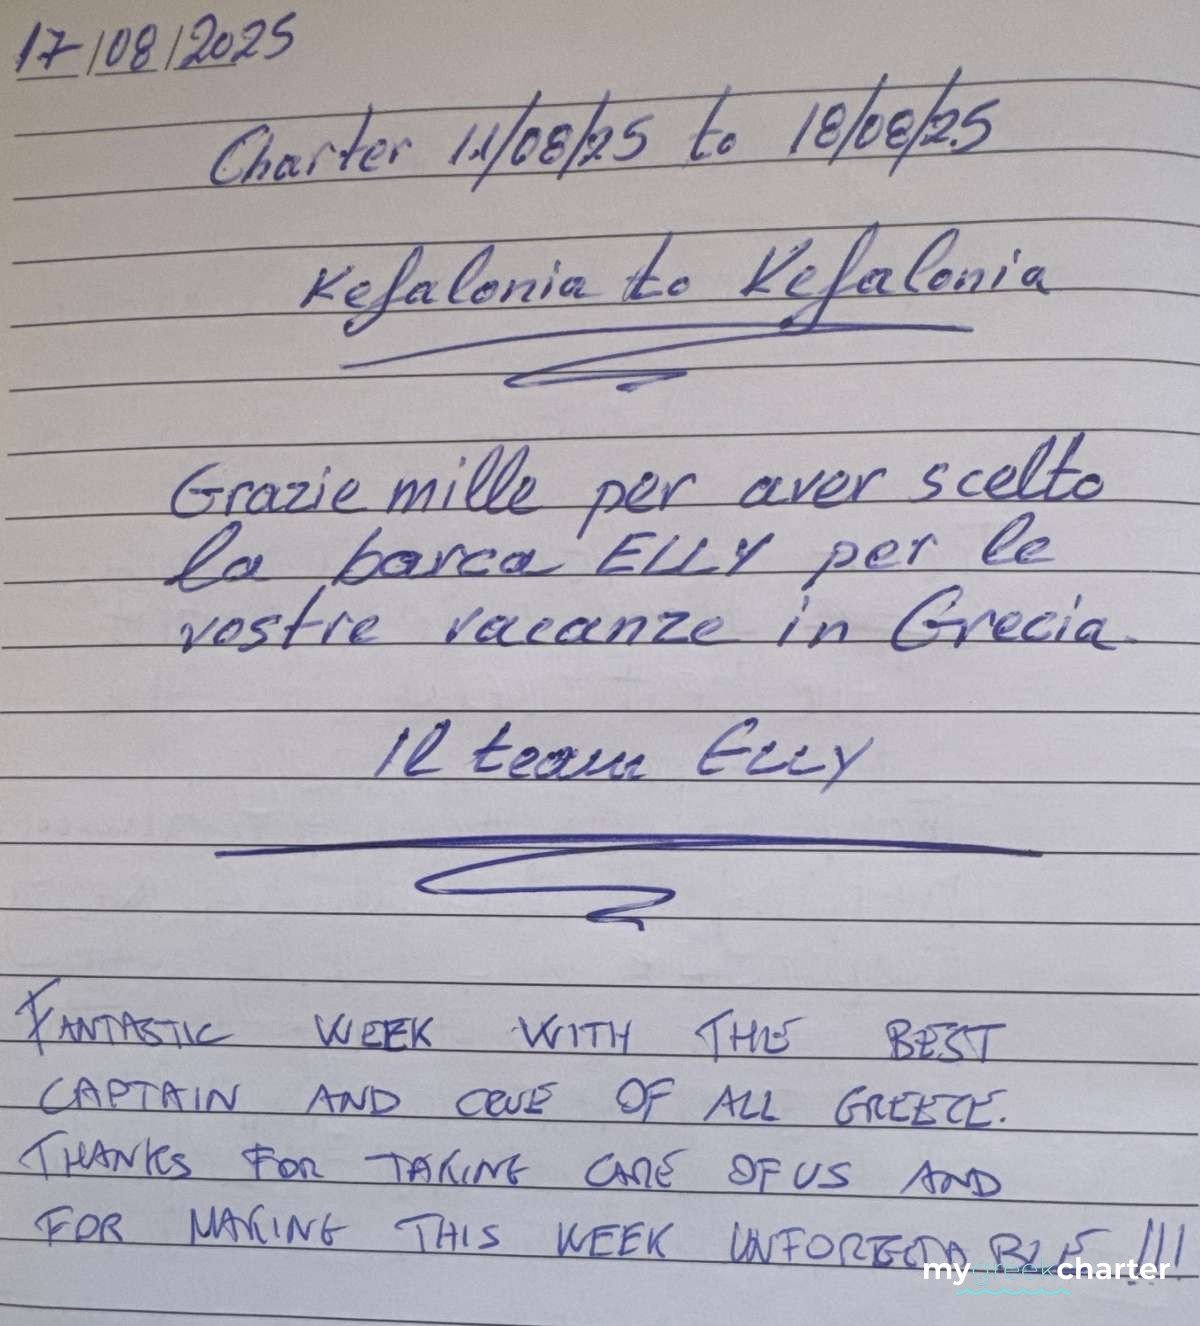 17/08/2025
Charter 11/08/25 to 18/08/25
Kefalonia to Kefalonia
Grazie mille per aver scelto
la barca ELLY per le
vostre vacanze in Grecia.
Il team Elly
FANTASTIC WEEK WITH THE BEST
CAPTAIN AND CRUE OF ALL GREECE.
THANKS FOR TAKING CARE OF US AND
FOR MAKING THIS WEEK UNFORGETTABLE !!!
mygreekcharter